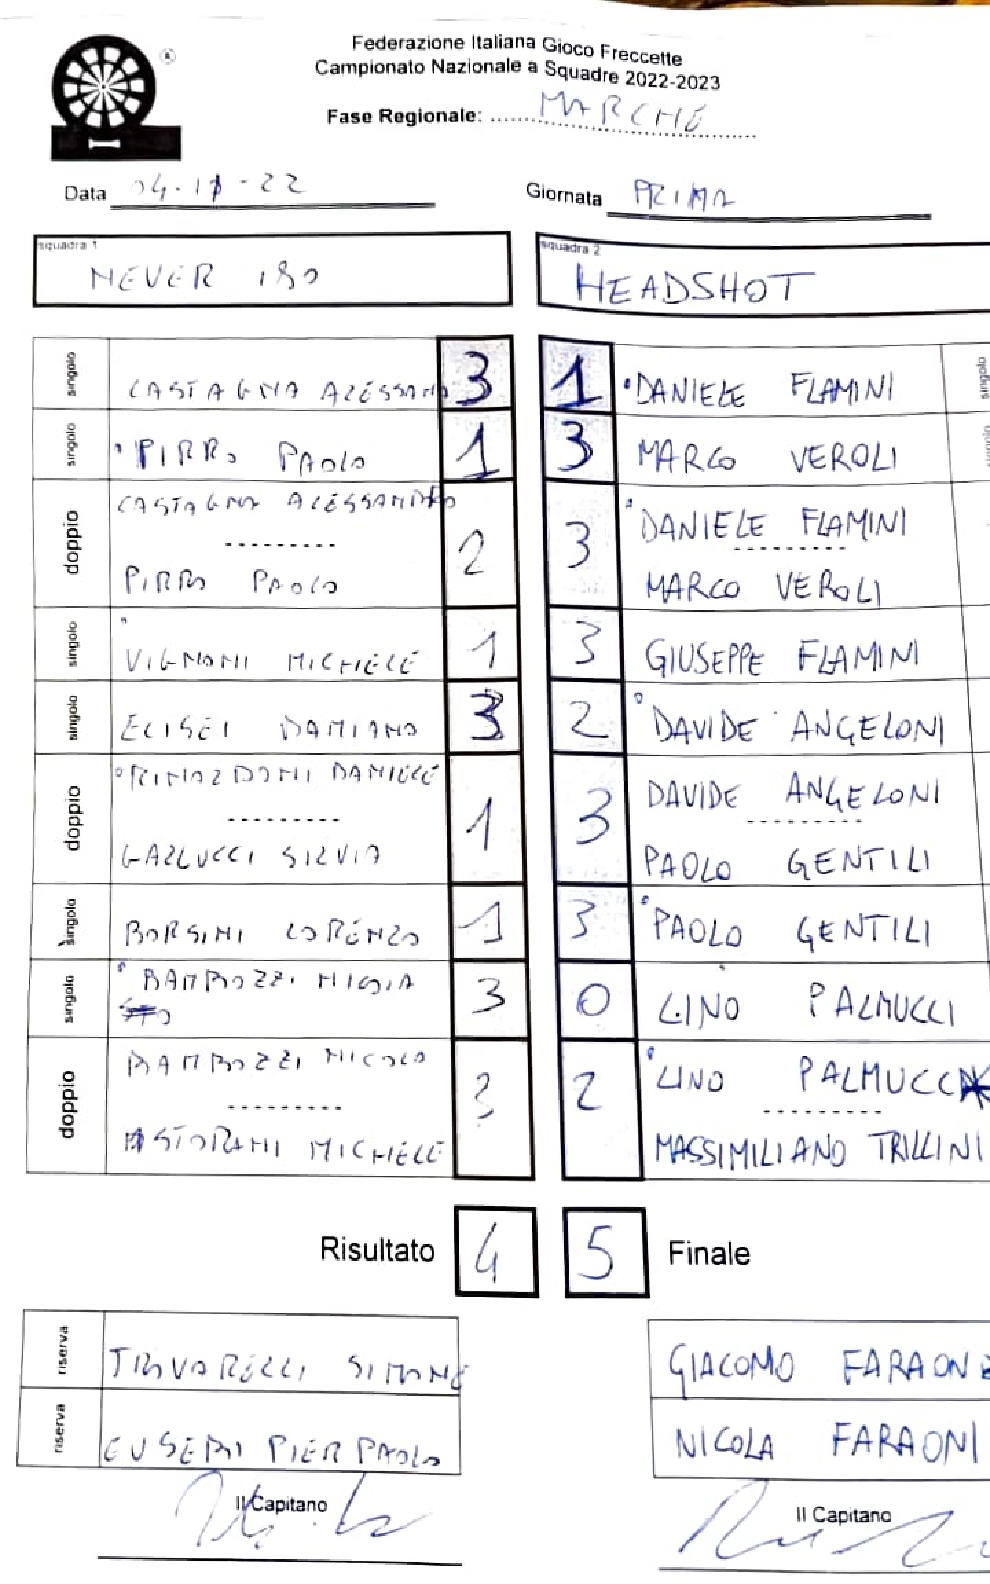 Federazione Italiana Gioco Freccette
Campionato Nazionale a Squadre 2022-2023
Fase Regionale: MARCHE
Data 04-11-22 Giornata PRIMA
squadra 1 squadra 2
NEVER 180 HEADSHOT
singolo CASTAGNA ALESSAND 3 1 DANIELE FLAMINI singolo
singolo PIRRO PAOLO 1 3 MARCO VEROLI
doppio CASTAGNA ALESSANDRO 2 3 DANIELE FLAMINI
PIRRO PAOLO MARCO VEROLI
singolo VIGNONI MICHELE 1 3 GIUSEPPE FLAMINI
singolo ELISEI DAMIANO 3 2 DAVIDE ANGELONI
doppio DANIELE 1 3 DAVIDE ANGELONI
SILVIA PAOLO GENTILI
singolo BORSINI LORENZO 1 3 PAOLO GENTILI
singolo BAMBOZZI 3 0 LINO PALMUCCI
doppio BAMBOZZI NICOLO 3 2 LINO PALMUCCI
MICHELE MASSIMILIANO TRILLINI
Risultato 4 5 Finale
riserva SIMONE GIACOMO FARAONE
riserva EUSEBI PIERPAOLO NICOLA FARAONI
Il Capitano Il Capitano